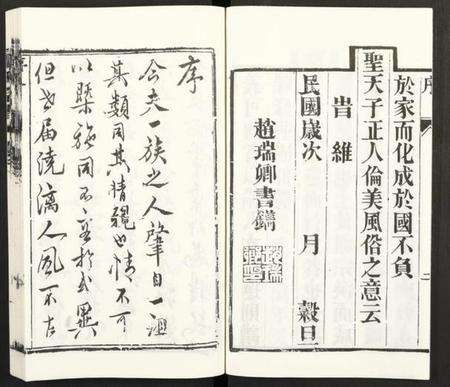 序
於家而化成於國不負
聖天子正人倫美風俗之意云
旹維
民國歲次 月 穀旦
趙瑞卿書鐫
序
今夫一族之人肇自一祖
其類同其情親也情不可
以槩施同不
但世届澆漓人風不古